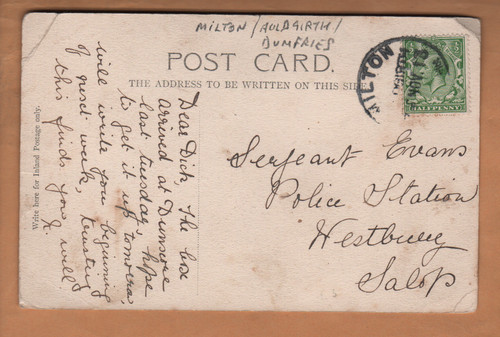 MILTON / AULDGIRTH /
DUMFRIES
POST CARD.
THE ADDRESS TO BE WRITTEN ON THIS SIDE
MILTON
HALFPENNY
Write here for Inland Postage only.
Dear Dick, The box
arrived at Dunscore
last tuesday, hope
to get it up tomorrow,
will write you beginning
of next week, trusting
this finds you well
Sergeant Evans
Police Station
Westbury
Salop